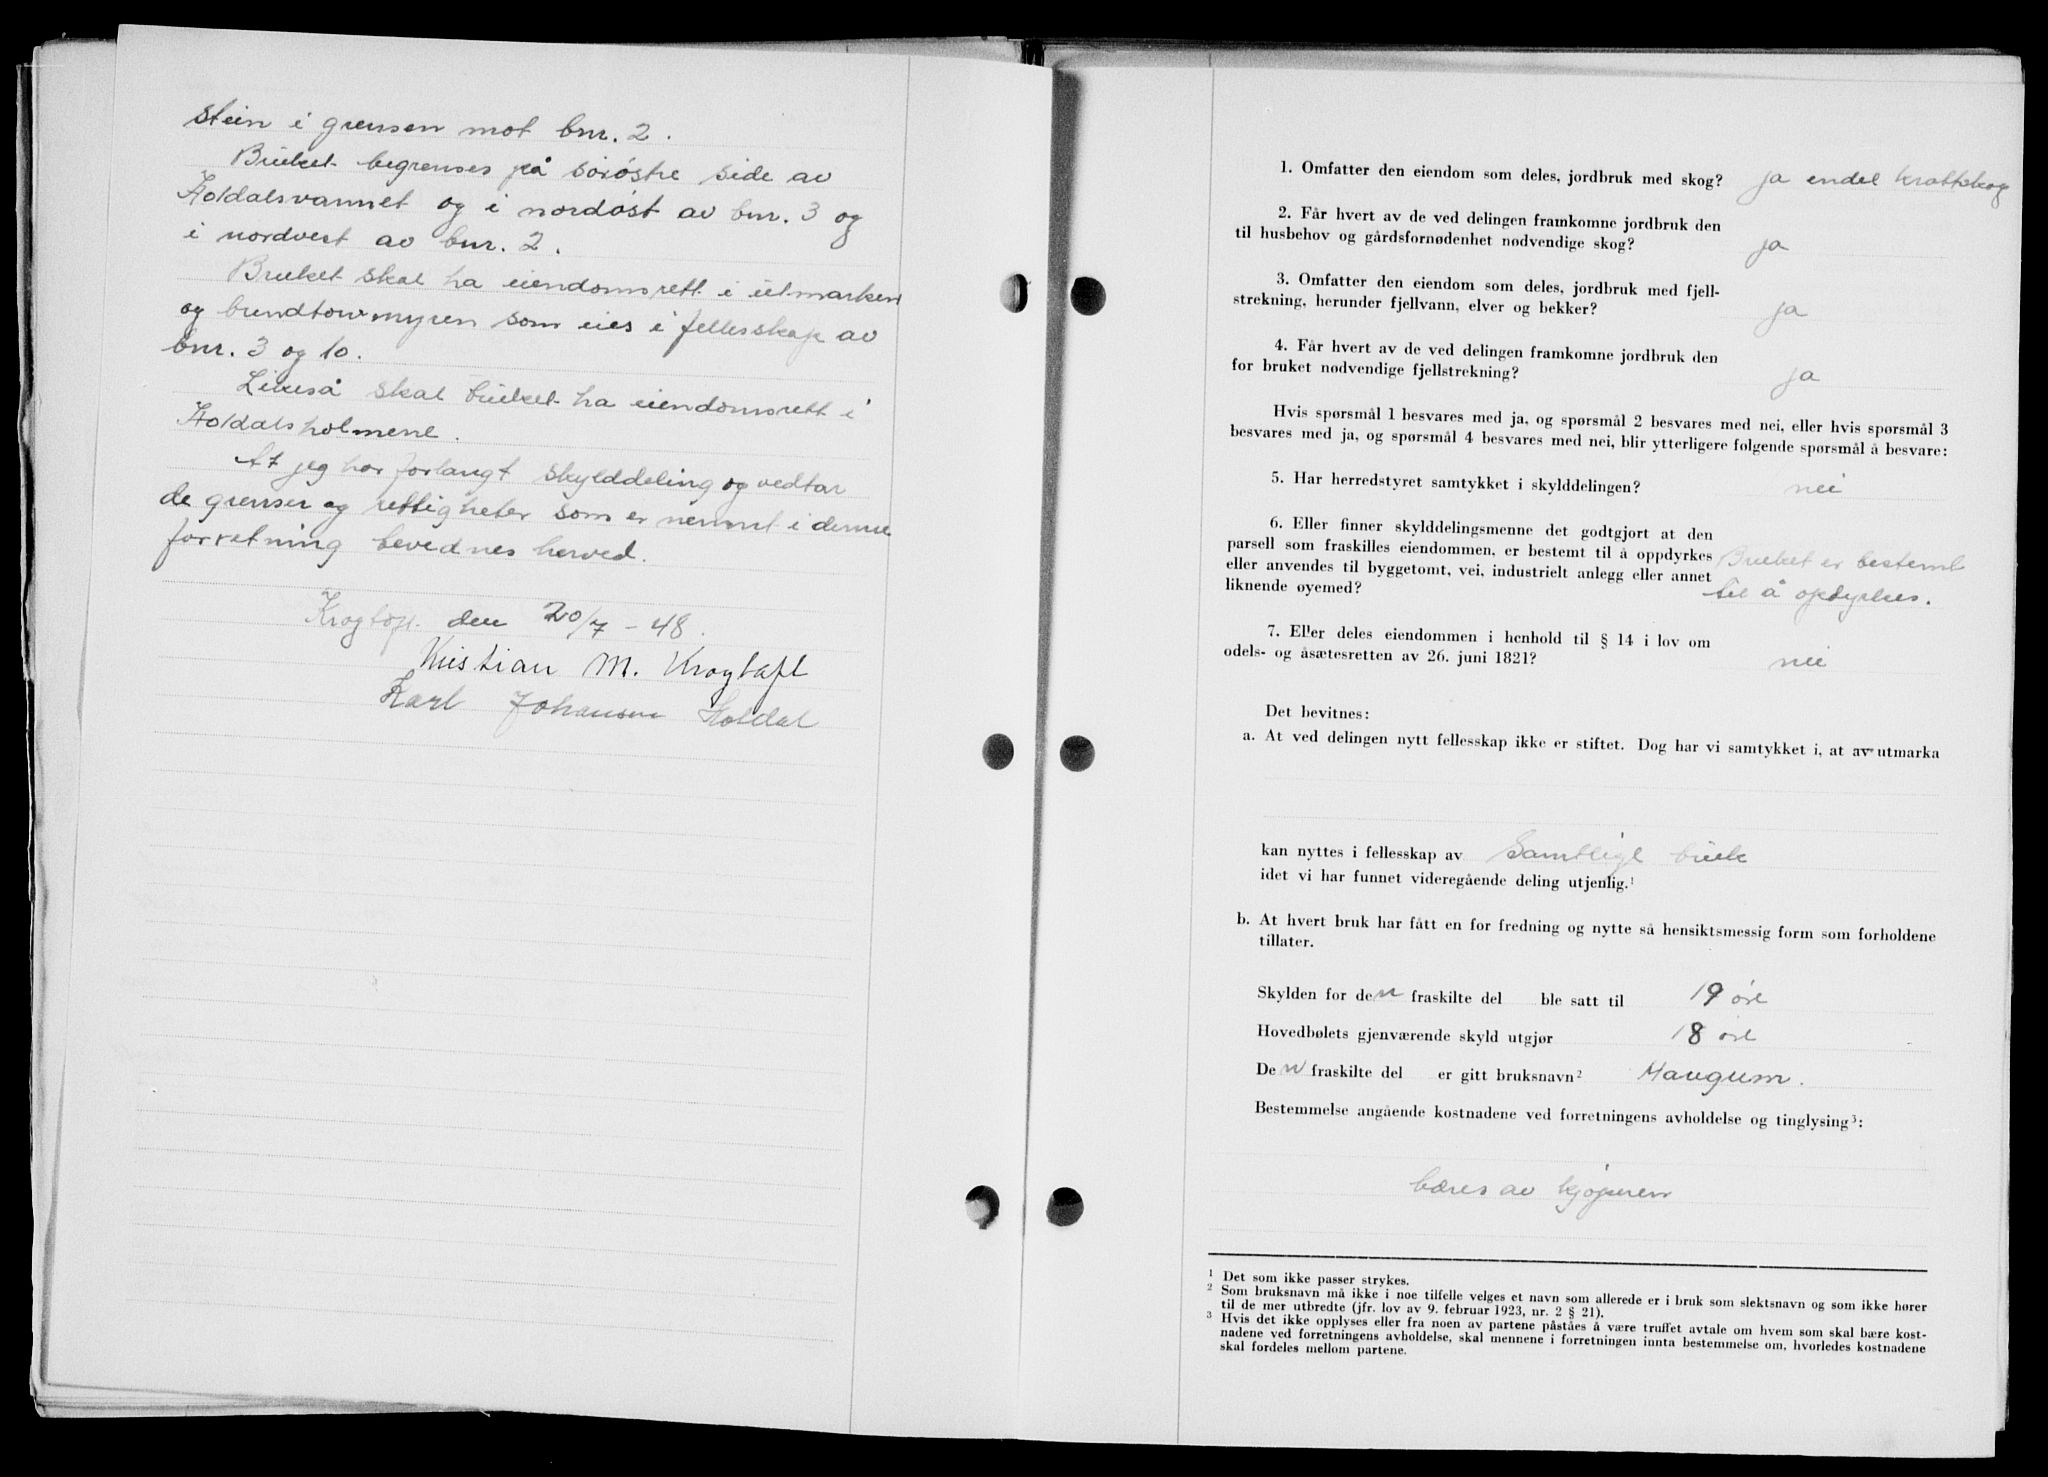 stein i grensen mot bnr. 2.
Bruket begrenses på sørøstre side av
Holdalsvannet og i nordøst av bnr. 3 og
i nordvest av bnr. 2.
Bruket skal ha eiendomsrett i utmarken
og brendtorvmyren som eies i fellesskap av
bnr. 3 og 10.
Likeså skal bruket ha eiendomsrett i
Holdalsholmene.
At jeg har forlangt skylddeling og vedtar
de grenser og rettigheter som er nemnt i denne
forretning bevednes herved.
Krogtoft den 20/7 - 48.
Kristian M. Krogtoft
Karl Johansen Holdal
1. Omfatter den eiendom som deles, jordbruk med skog? ja endel krattskog
2. Får hvert av de ved delingen framkomne jordbruk den
til husbehov og gårdsfornødenhet nødvendige skog? ja
3. Omfatter den eiendom som deles, jordbruk med fjell-
strekning, herunder fjellvann, elver og bekker? ja
4. Får hvert av de ved delingen framkomne jordbruk den
for bruket nødvendige fjellstrekning? ja
Hvis spørsmål 1 besvares med ja, og spørsmål 2 besvares med nei, eller hvis spørsmål 3
besvares med ja, og spørsmål 4 besvares med nei, blir ytterligere følgende spørsmål å besvare:
5. Har herredstyret samtykket i skylddelingen? nei
6. Eller finner skylddelingsmenne det godtgjort at den
parsell som fraskilles eiendommen, er bestemt til å oppdyrkes Bruket er bestemt
eller anvendes til byggetomt, vei, industrielt anlegg eller annet
liknende øyemed? til å opdyrkes.
7. Eller deles eiendommen i henhold til § 14 i lov om
odels- og åsætesretten av 26. juni 1821? nei
Det bevitnes:
a. At ved delingen nytt fellesskap ikke er stiftet. Dog har vi samtykket i, at av utmarka
kan nyttes i fellesskap av Samtlige bruk
idet vi har funnet videregående deling utjenlig.¹
b. At hvert bruk har fått en for fredning og nytte så hensiktsmessig form som forholdene
tillater.
Skylden for den fraskilte del ble satt til 19 øre
Hovedbølets gjenværende skyld utgjør 18 øre
Den fraskilte del er gitt bruksnavn² Haugum.
Bestemmelse angående kostnadene ved forretningens avholdelse og tinglysing³:
bæres av kjøperen
¹ Det som ikke passer strykes.
² Som bruksnavn må ikke i noe tilfelle velges et navn som allerede er i bruk som slektsnavn og som ikke hører
til de mer utbredte (jfr. lov av 9. februar 1923, nr. 2 § 21).
³ Hvis det ikke opplyses eller fra noen av partene påståes å være truffet avtale om hvem som skal bære kost-
nadene ved forretningens avholdelse, skal mennene i forretningen innta bestemmelse om, hvorledes kostnadene
skal fordeles mellom partene.